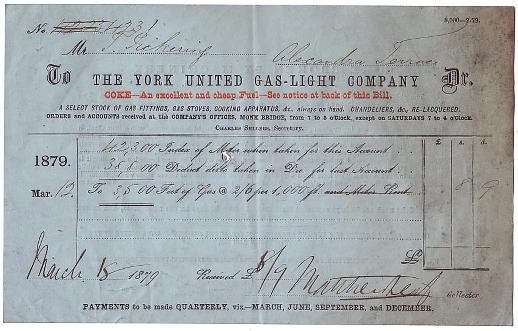 8,000—2-79.
No 4331
Mr. J. Pickering Alexandra Terrace
To THE YORK UNITED GAS-LIGHT COMPANY Dr.
COKE—An excellent and cheap Fuel—See notice at back of this Bill.
A SELECT STOCK OF GAS FITTINGS, GAS-STOVES, COOKING APPARATUS, &c., always on hand. CHANDELIERS, &c., RE-LACQUERED.
ORDERS and ACCOUNTS received at the COMPANY'S OFFICES, MONK BRIDGE, from 7 to 8 o'clock, except on SATURDAYS 7 to 4 o'clock.
CHARLES SELLERS, Secretary.
£ s. d.
1879. 42,3.00 Index of Meter when taken for this Account.
38,8.00 Deduct ditto taken in Dec for last Account.
Mar. 12 To 3,5 00 Feet of Gas @ 2/6 per 1,000 ft. and Meter Rent 8 9
£
March 18 1879 Received £ 8/9 Collector.
PAYMENTS to be made QUARTERLY, viz.—MARCH, JUNE, SEPTEMBER, and DECEMBER.